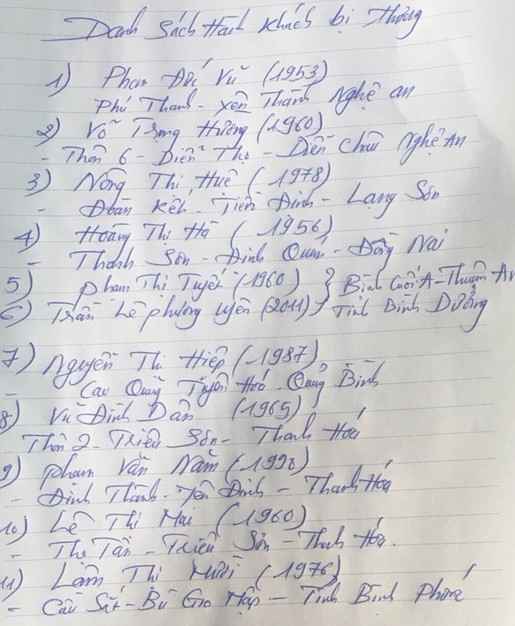 Danh Sách Hành khách bị Thương
1) Phan Đức Vũ (1953)
Phú Thành - Yên Thành Nghệ an
2) Võ Trọng Hường (1960)
- Thôn 6 - Diễn Thọ - Diễn Châu Nghệ An
3) Nông Thị Huê (1978)
- Đoàn Kết - Tiến Đình - Lạng Sơn
4) Hoàng Thị Hà (1956)
- Thanh Sơn - Định Quán - Đồng Nai
5) Phạm Thị Tuyết (1960) } Bình A - Thuận An
6) Trần Lê phương uyên (2011) } Tỉnh Bình Dương
7) Nguyễn Thị Hiệp (-1987)
- Cao Quảng Tuyên Hoá - Quảng Bình
8) Vũ Đình Dần (1965)
Thôn 2 - Triệu Sơn - Thanh Hoá
9) phạm Văn Năm (1990)
- Định Thành - Yên Định - Thanh Hóa
10) Lê Thị Mai (1960)
- Thọ Tân - Triệu Sơn - Thanh Hóa.
11) Lâm Thị Mười (1976)
- Cầu Sắt - Bù Gia Mập - Tỉnh Bình Phước